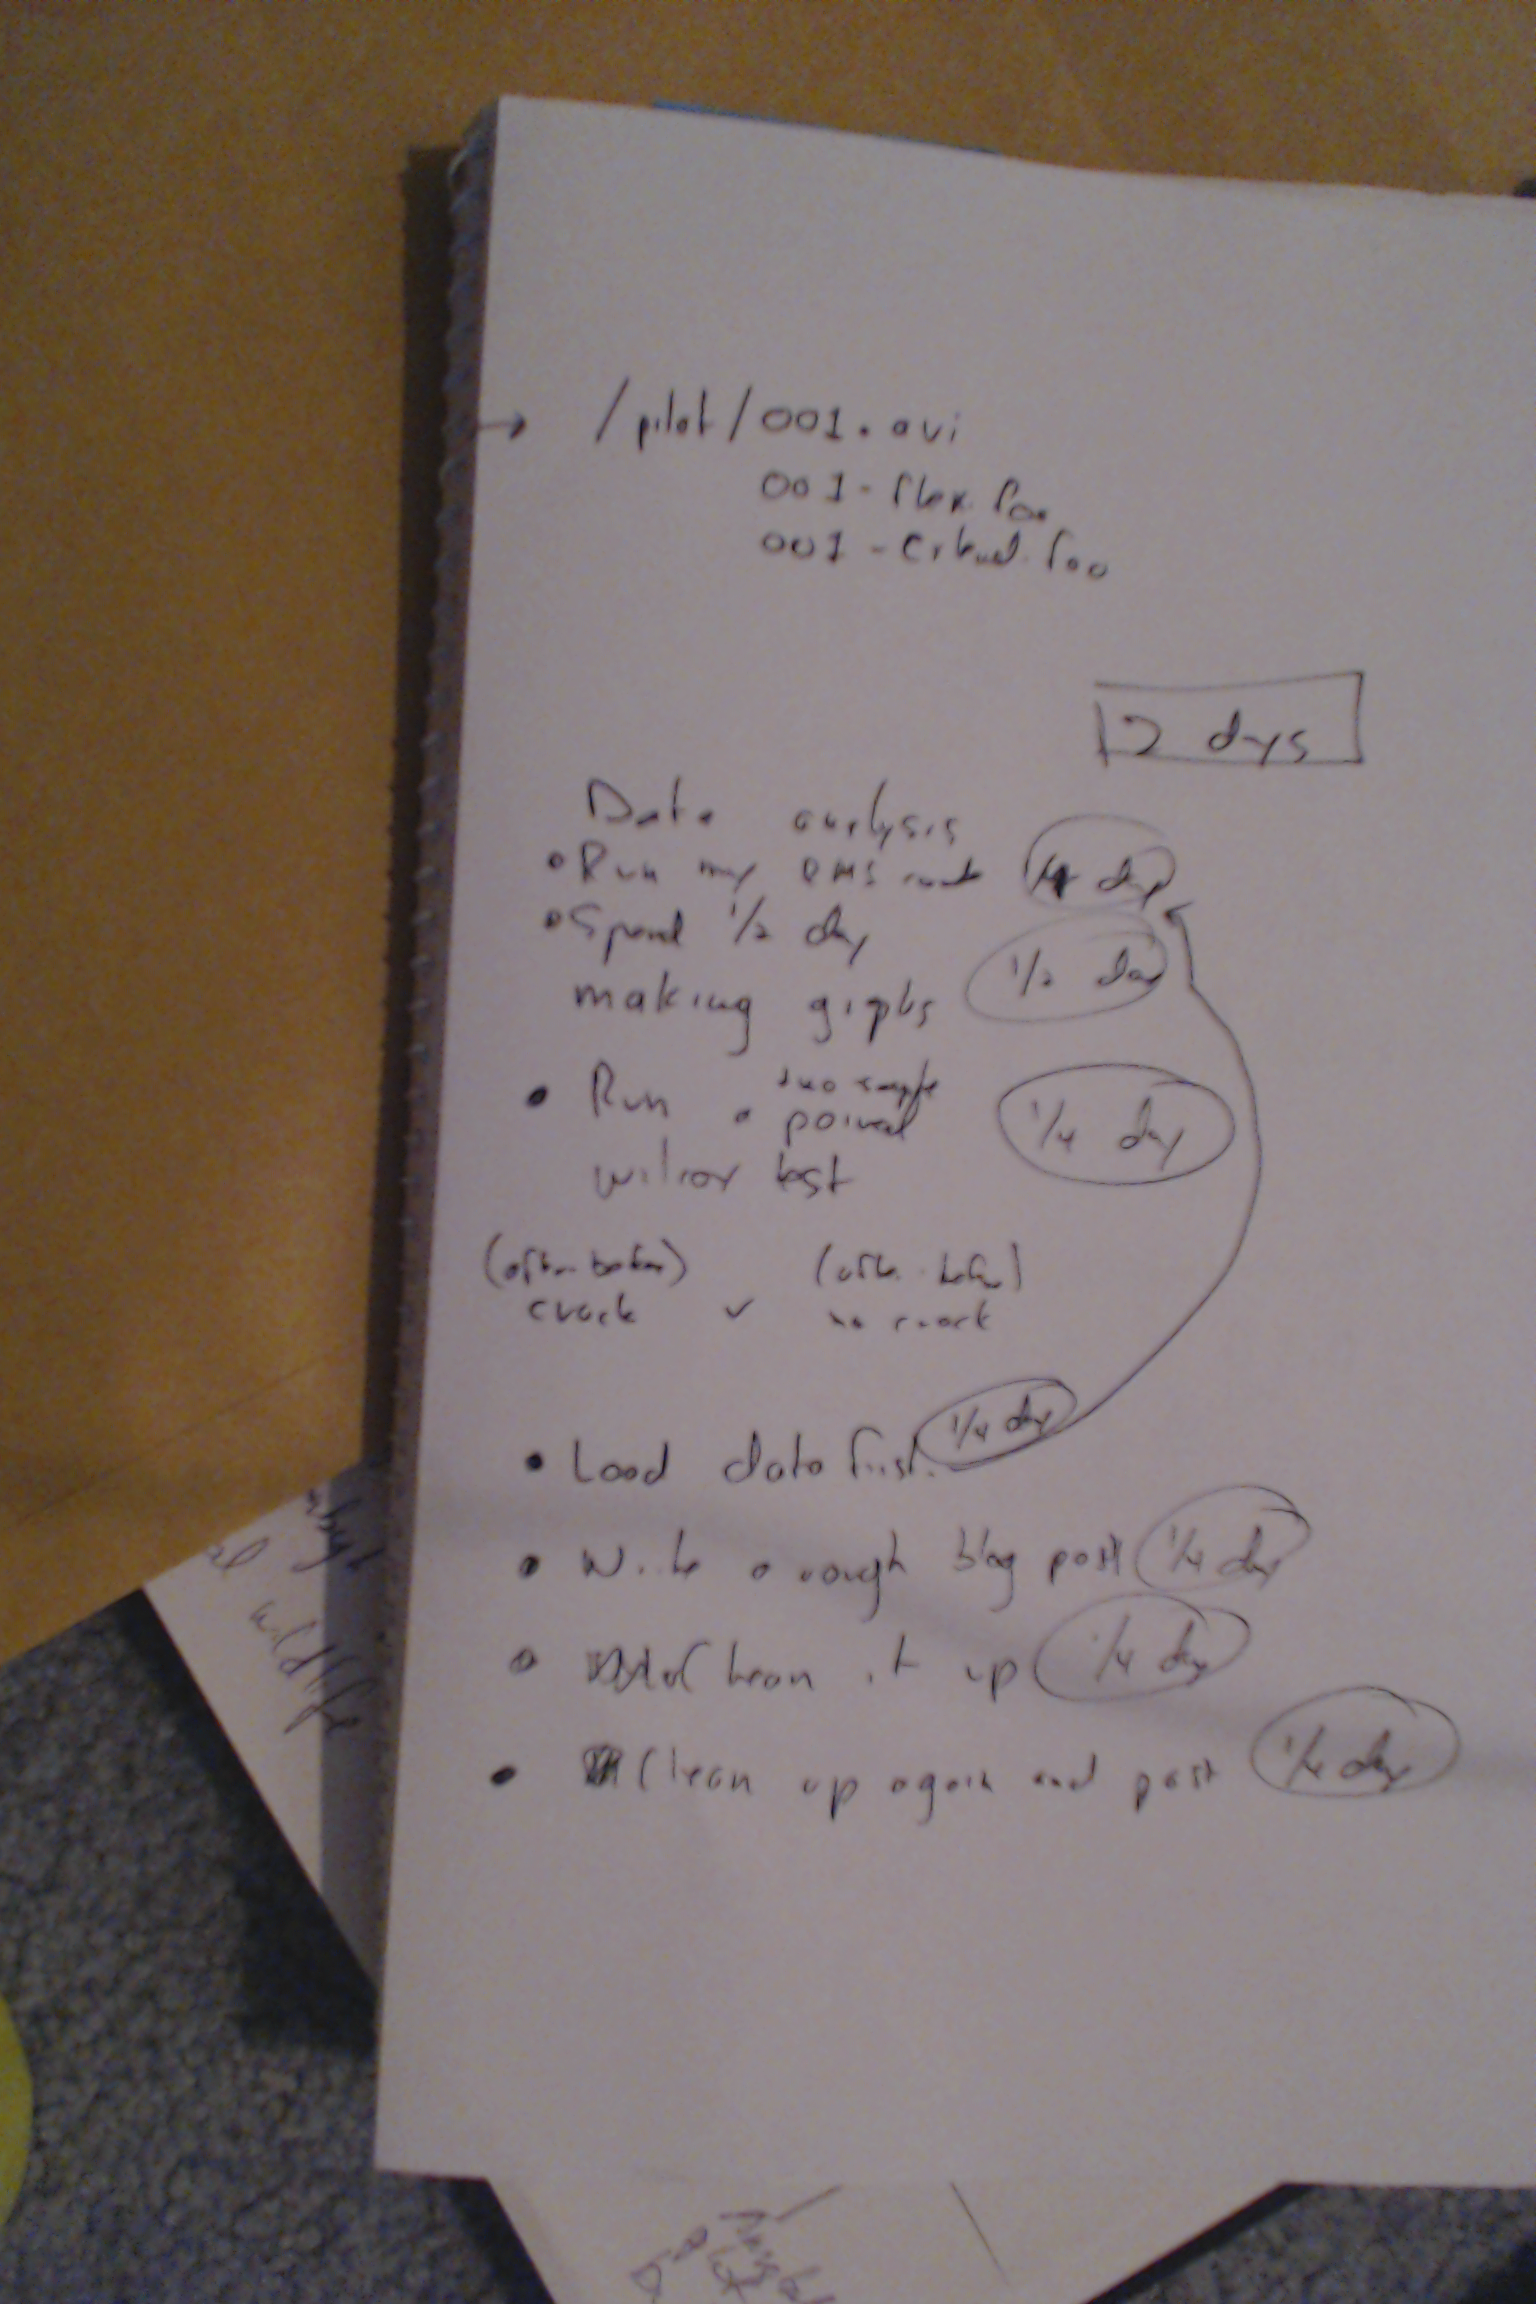 → /pilot/001.avi
001-flex.foo
001-
2 days
Data analysis
• Run my RMS 1/4 day
• Spend 1/2 day
making graphs 1/2 day
two sample
• Run a paired 1/4 day
wilcox test
(after-before) (after-before)
crack v no crack
• Load data first. 1/4 day
• Write a rough blog post 1/4 day
• Clean it up 1/4 day
• Clean up again and post 1/4 day
wildlife